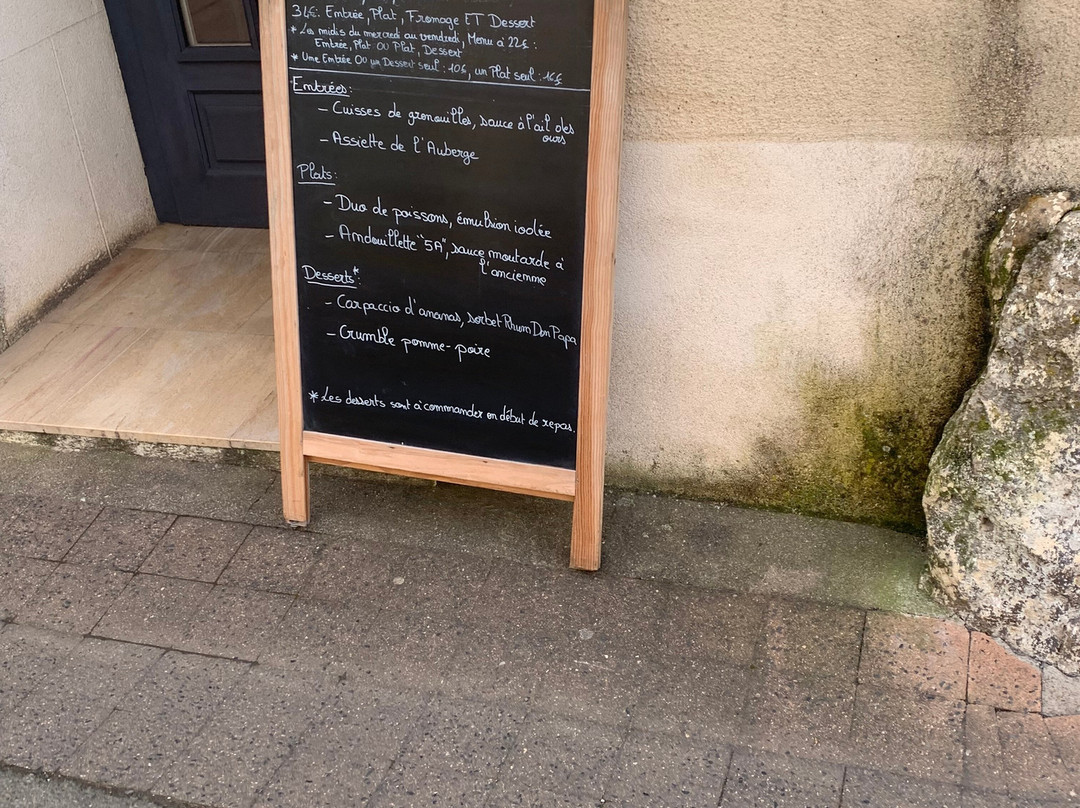 34€: Entrée, Plat, Fromage ET Dessert
* Les midis du mercredi au vendredi, Menu à 22€ :
Entrée, Plat OU Plat, Dessert
* Une Entrée OU un Dessert seul : 10€, un Plat seul : 16€
Entrées :
- Cuisses de grenouilles, sauce à l'ail des
ours
- Assiette de l'Auberge
Plats :
- Duo de poissons, émulsion iodée
- Andouillette "5A", sauce moutarde à
l'ancienne
Desserts* :
- Carpaccio d'ananas, sorbet Rhum Don Papa
- Crumble pomme-poire
* Les desserts sont à commander en début de repas.